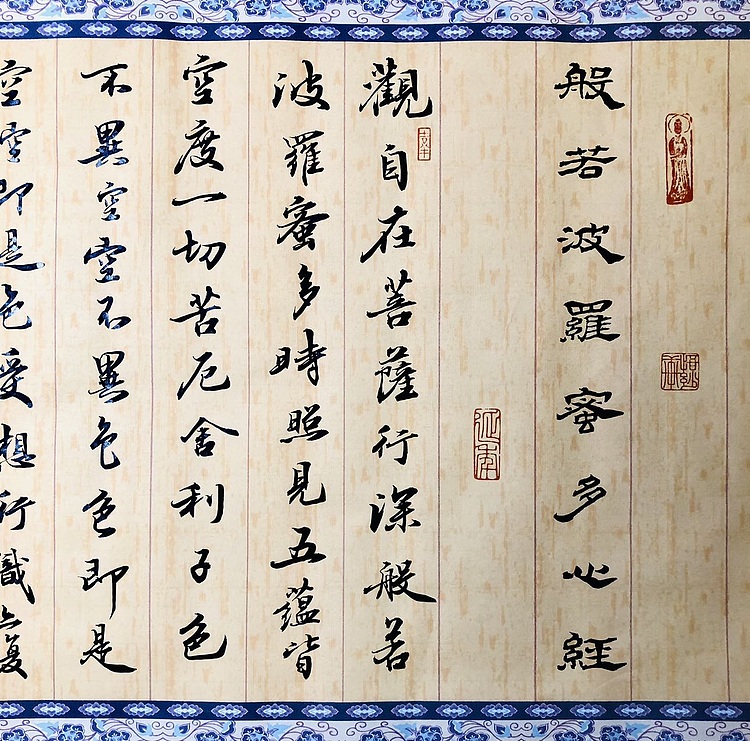 般若波羅蜜多心經
延年
觀自在菩薩行深般若
波羅蜜多時照見五蘊皆
空度一切苦厄舍利子色
不異空空不異色色即是
空空即是色受想行識亦復